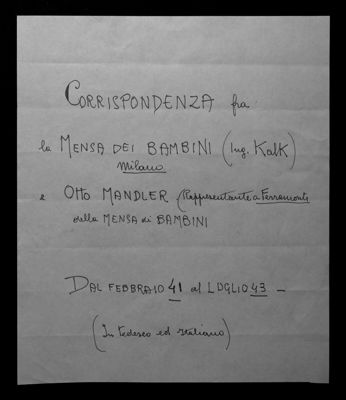 CORRISPONDENZA fra
la MENSA DEI BAMBINI (Ing. Kalk)
Milano
e OTTO MANDLER (Rappresentante a Ferramonti
della MENSA di BAMBINI
DAL FEBBRAIO 41 al LUGLIO 43 —
(In tedesco ed Italiano)